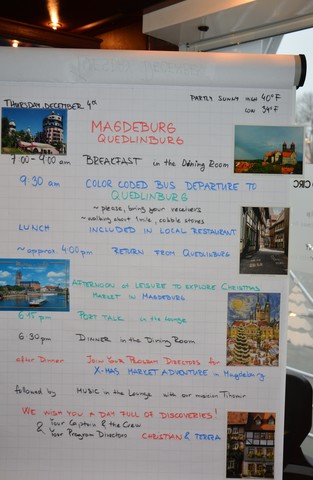 THURSDAY DECEMBER 4th
PARTLY SUNNY HIGH 40°F
LOW 34°F
MAGDEBURG
QUEDLINBURG
7:00 - 9:00 am BREAKFAST in the Dining Room
9:30 am COLOR CODED BUS DEPARTURE TO
QUEDLINBURG
~ please, bring your receivers
~ walking about 1 mile, cobble stones
LUNCH INCLUDED IN LOCAL RESTAURANT
~ approx. 4:00 pm RETURN FROM QUEDLINBURG
AFTERNOON AT LEISURE TO EXPLORE CHRISTMAS
MARKET IN MAGDEBURG
6:15 pm PORT TALK in the Lounge
6:30 pm DINNER in the Dining Room
after Dinner JOIN YOUR PROGRAM DIRECTORS for
X-MAS MARKET ADVENTURE in Magdeburg
followed by MUSIC in the Lounge with our musician Tihomir
WE WISH YOU A DAY FULL OF DISCOVERIES!
Your Captain & the Crew
& Your Program Directors CHRISTIAN &